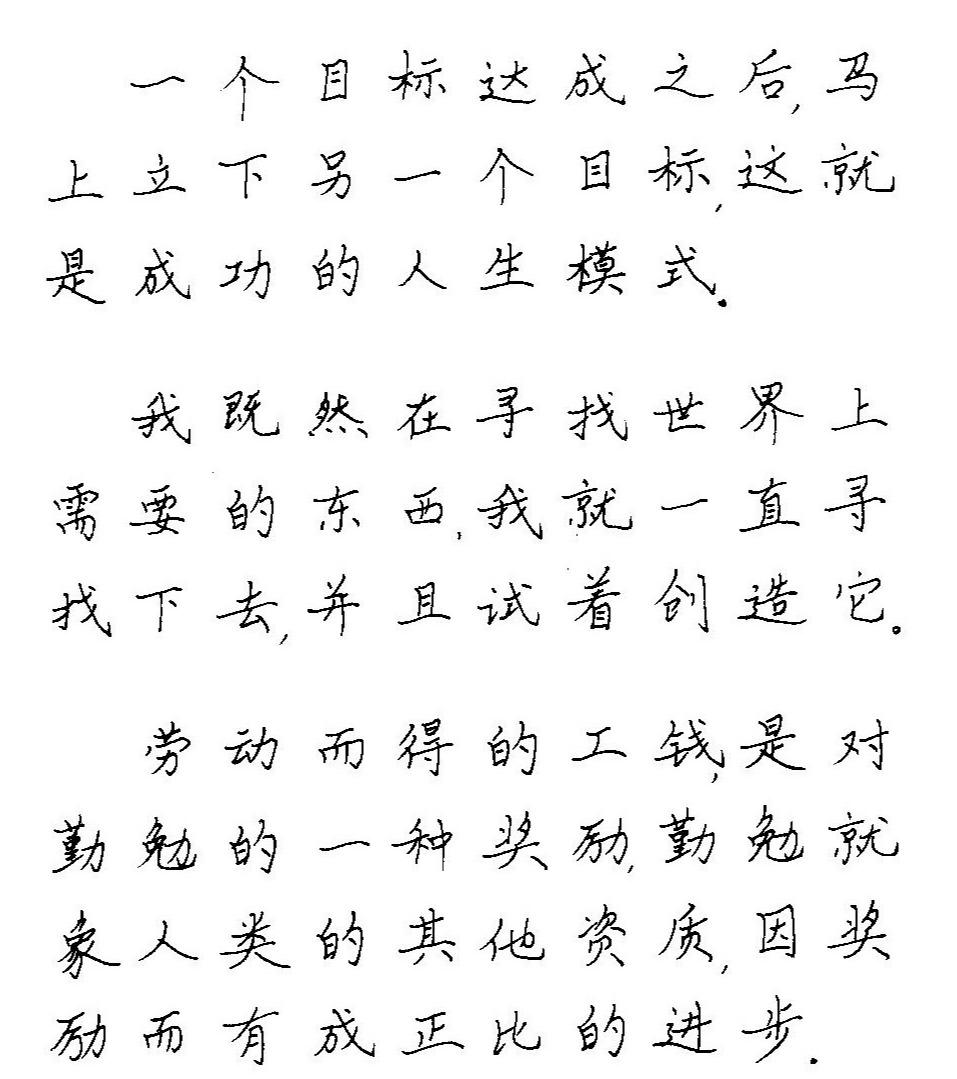 一个目标达成之后,马
上立下另一个目标,这就
是成功的人生模式.
我既然在寻找世界上
需要的东西,我就一直寻
找下去,并且试着创造它。
劳动而得的工钱,是对
勤勉的一种奖励,勤勉就
象人类的其他资质,因奖
励而有成正比的进步.